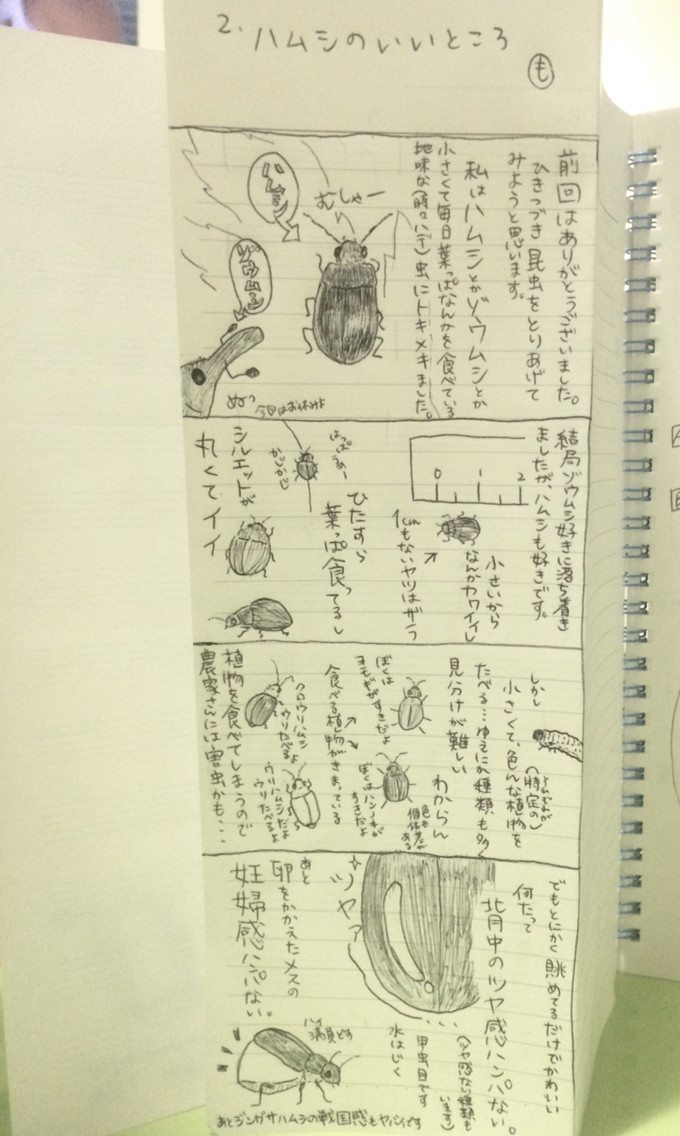 2. ハムシのいいところ
も
前回はありがとうございました。
ひきつづき昆虫をとりあげて
みようと思います。
私はハムシとかゾウムシとか
小さくて毎日葉っぱなんかを食べている
地味な(時々ハデ)虫にトキメキました。
むしゃー
ハムシ
ゾウムシ
ぬっ
今回はお休みよ
結局ゾウムシ好きに落ち着き
ましたが、ハムシも好きです。
0 1 2
小さいから
なんかカワイイし
1cmもないヤツはザラ
ひたすら
葉っぱ食ってるし
はっぱうめー
かじかじ
シルエットが
丸くてイイ
しかし
小さくて、色んな植物を
(特定の)
たべる…ゆえにか種類も多く
見分けが難しい
わからん
色も
個体差が
ある
ぼくは
ヨモギがすきだよ
ぼくはハンノキが
すきだよ
食べる植物がきまっている
クロウリハムシ
ウリたべるよ
ウリハムシだよ
ウリたべるよ
植物を食べてしまうので
農家さんには害虫かも…
でもとにかく眺めてるだけでかわいい
何たって
背中のツヤ感ハンパない。
(ツヤ感ない種類も
います)
甲虫目です
水はじく
ツヤァ
あと
卵をかかえたメスの
妊婦感ハンパない。
ハイ
満員です
あとジンガサハムシの戦国感もヤバイです